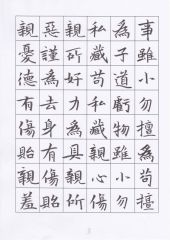 事雖小勿擅為苟擅
為子道虧物雖小勿
私藏苟私藏親心傷
親所好力為具親所
惡謹為去身有傷貽
親憂德有傷貽親羞